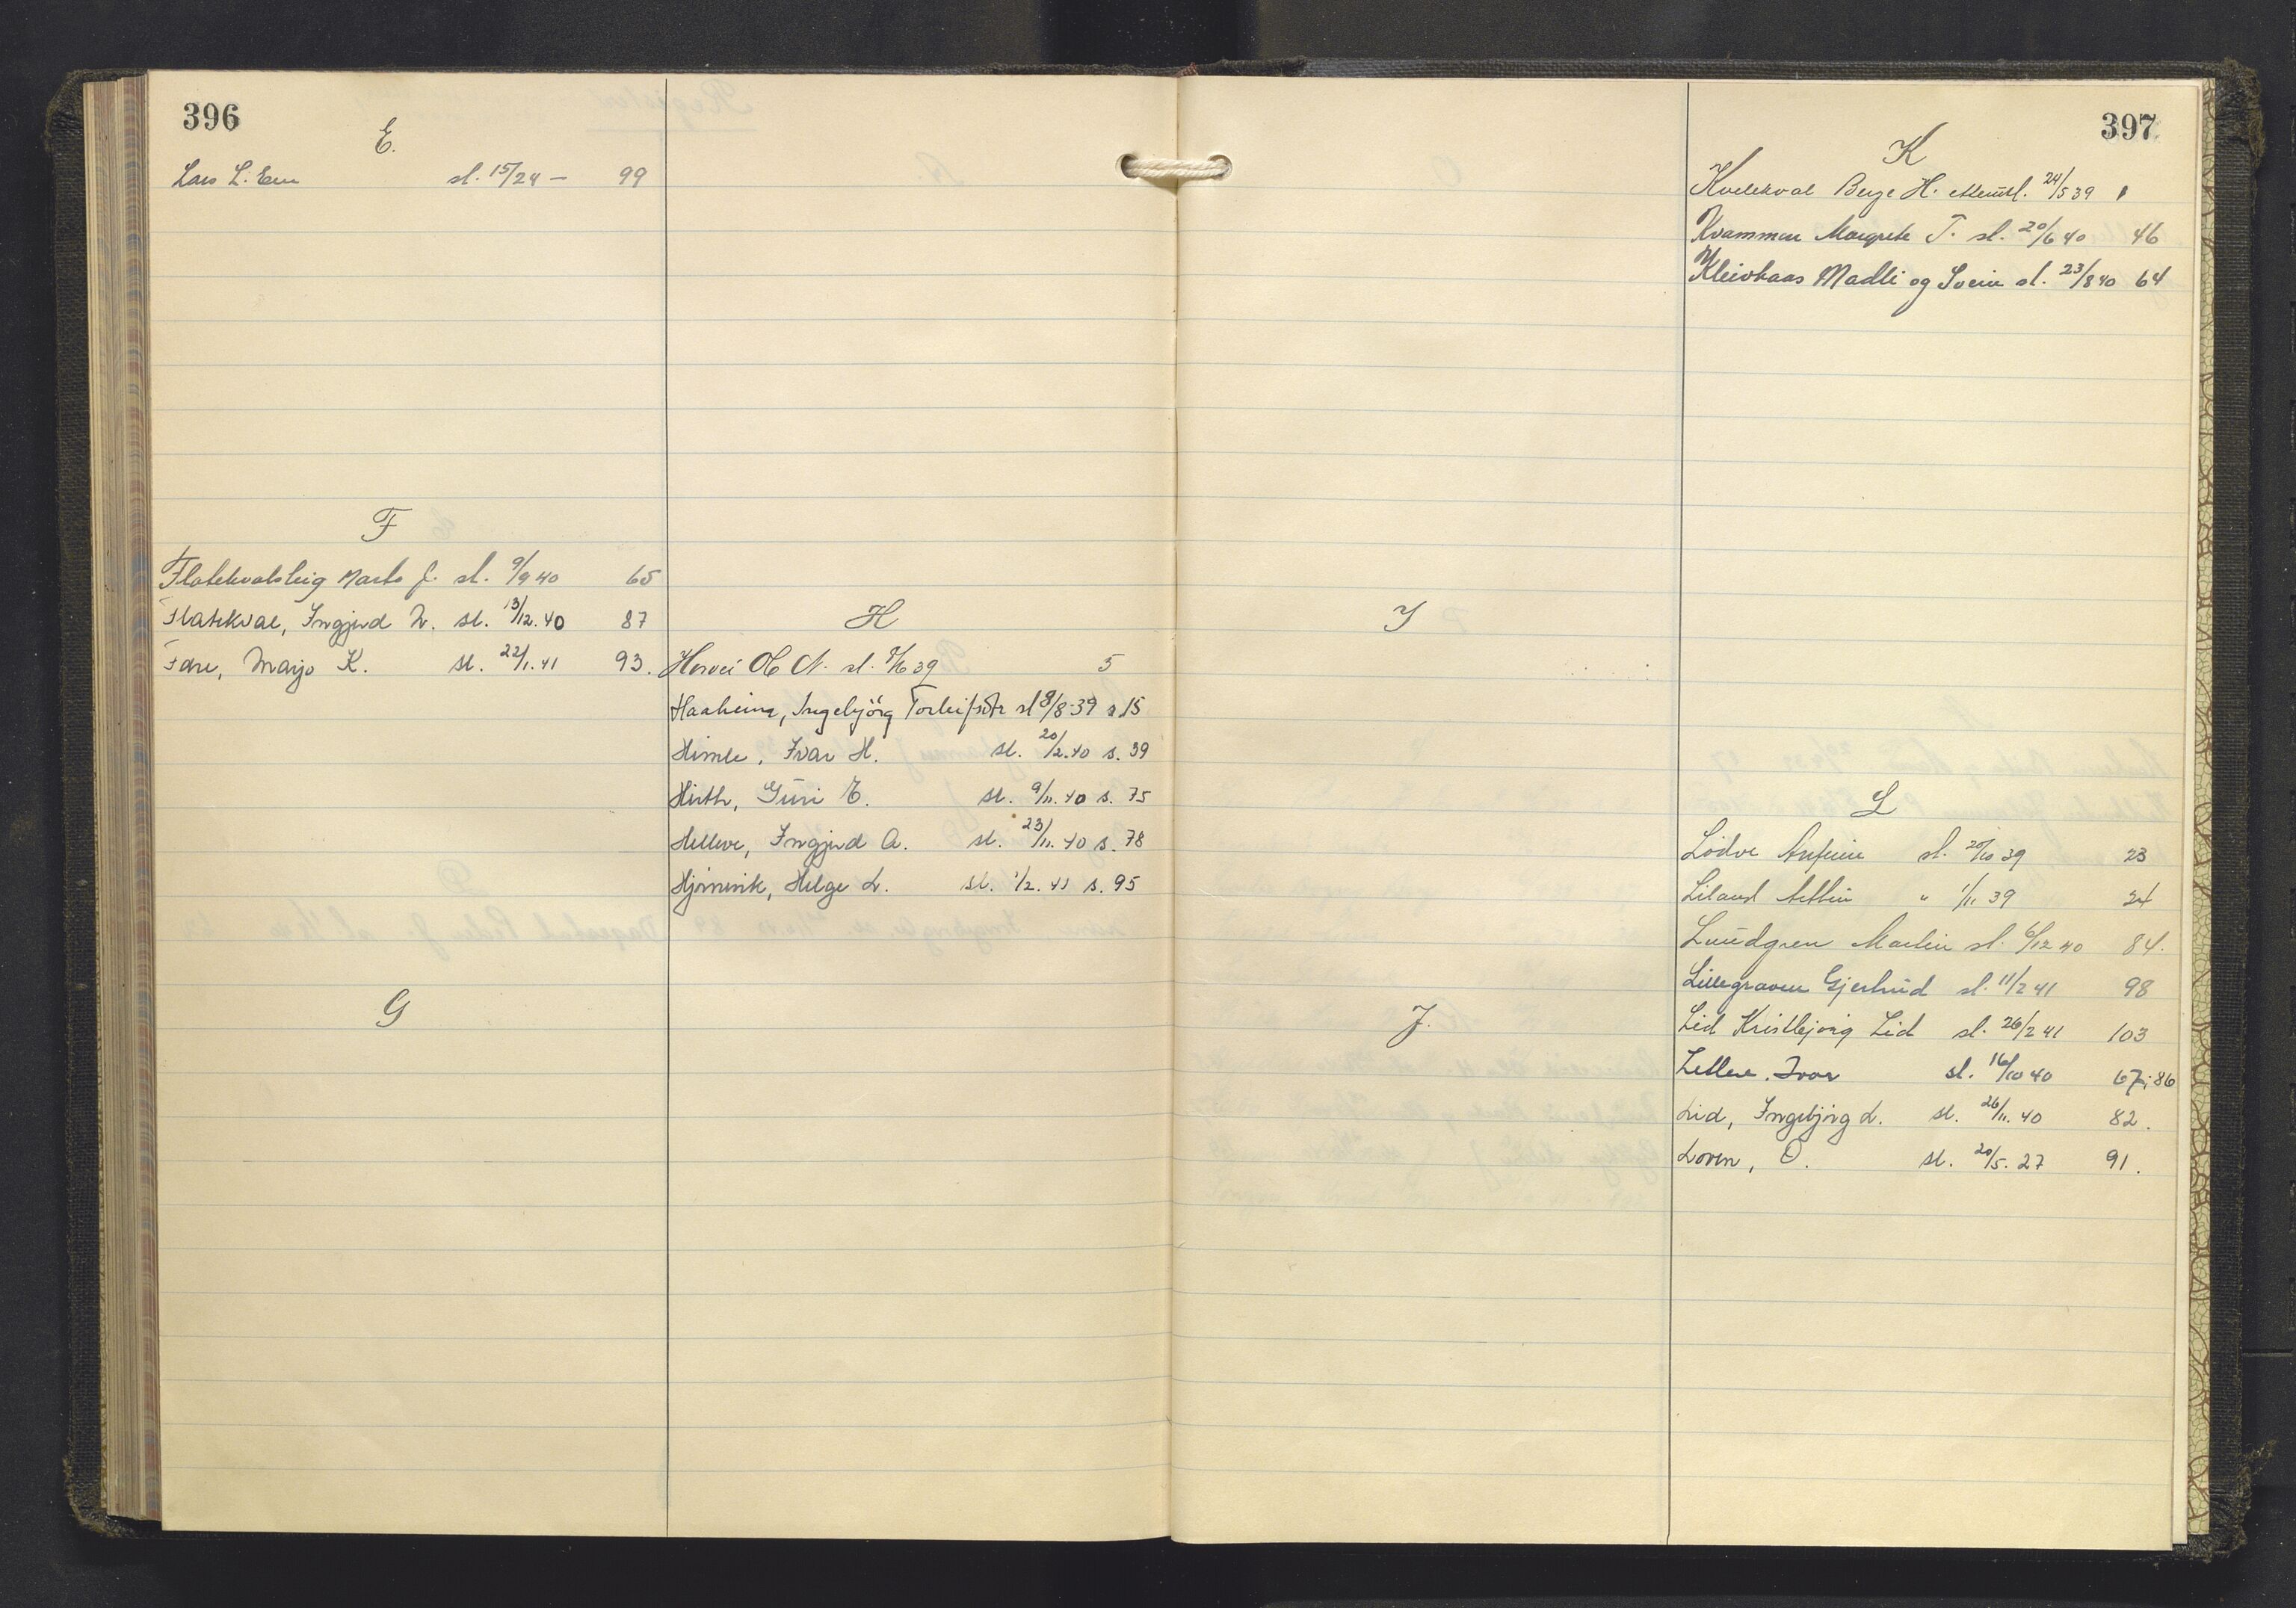 396
E.
Lars L. Em sl. 15/24 — 99
F
Flatekvalsteig Marta J. sl. 9/9 40 65
Flatekval, Ingjerd N. sl. 13/12. 40 87
Fære, Marjo K. sl. 22/1. 41 93.
G
H
Horvei Ole N. sl. 39 5
Haaheim, Ingebjörg Torleifsdtr sl 8/8-39 s 15
Himle, Ivar H. sl. 20/2.40 s. 39
Hirth, Guri E. sl. 9/11. 40 s. 75
Helleve, Ingjerd A. sl. 23/11. 40 s. 78
Hjörnevik, Helge L. sl. 1/2. 41 s. 95
397
Y
J.
K
Kvelekval Berge H. 24/5 39 1
Kvammen Margrete T. sl. 20/6 40 46
Kleivkaas Madli og Svein sl. 23/8 40 64
L
Lödve Anfinn sl. 20/10 39 23
Liland " 1/11 39 24
Lundgren Martin sl. 6/12 40 84.
Lillegraven Gjertrud sl. 11/2 41 98
Lid Kristbjörg Lid sl. 26/2 41 103
Ivar sl. 16/10 40 67; 86
Lid, Ingebjörg L. sl. 26/11. 40 82.
Loven, O. sl. 20/5. 27 91.